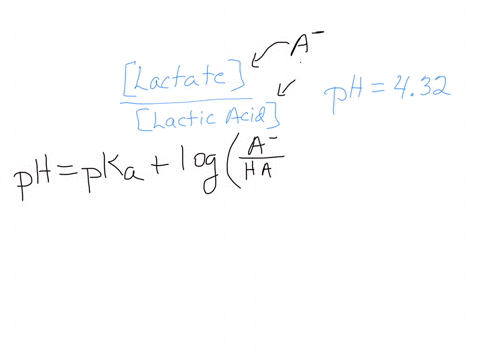 A⁻
[Lactate]
[Lactic Acid]
pH = 4.32
pKa + log (A⁻
pH = pKa + log (A⁻/HA